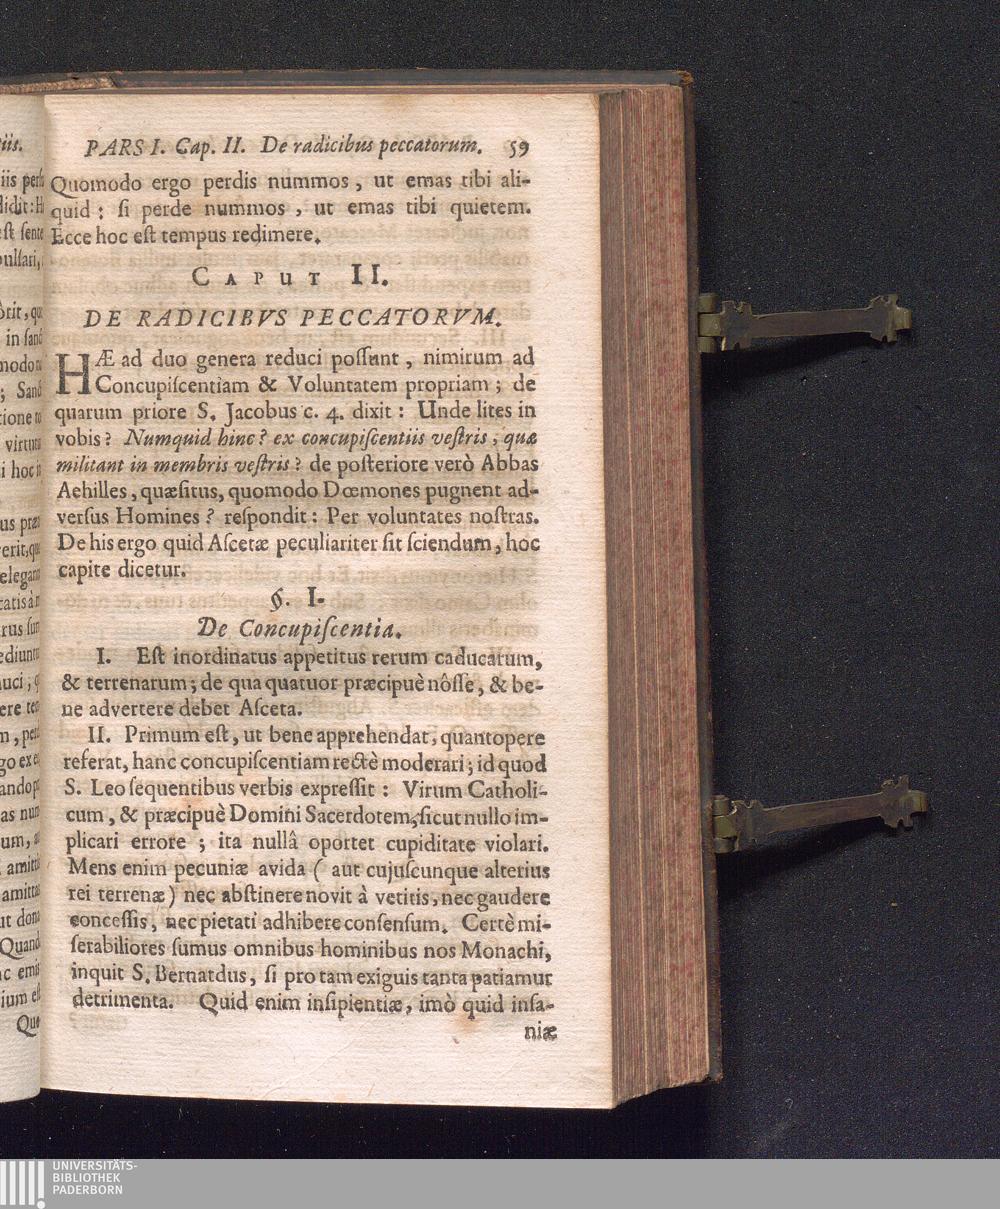 PARS I. Cap. II. De radicibus peccatorum. 59
Quomodo ergo perdis nummos, ut emas tibi ali-
quid: ſi perde nummos, ut emas tibi quietem.
Ecce hoc eſt tempus redimere.
CAPUT II.
DE RADICIBVS PECCATORVM.
HÆ ad duo genera reduci poſſunt, nimirum ad
Concupiſcentiam & Voluntatem propriam; de
quarum priore S. Jacobus c. 4. dixit: Unde lites in
vobis? Numquid hinc? ex concupiſcentiis veſtris, quæ
militant in membris veſtris? de poſteriore verò Abbas
Aehilles, quæſitus, quomodo Dœmones pugnent ad-
verſus Homines? reſpondit: Per voluntates noſtras.
De his ergo quid Aſcetæ peculiariter ſit ſciendum, hoc
capite dicetur.
§. I.
De Concupiſcentia.
I. Eſt inordinatus appetitus rerum caducarum,
& terrenarum; de qua quatuor præcipuè nôſſe, & be-
ne advertere debet Aſceta.
II. Primum eſt, ut bene apprehendat, quantopere
referat, hanc concupiſcentiam rectè moderari; id quod
S. Leo ſequentibus verbis expreſſit: Virum Catholi-
cum, & præcipuè Domini Sacerdotem, ſicut nullo im-
plicari errore; ita nullâ oportet cupiditate violari.
Mens enim pecuniæ avida (aut cujuſcunque alterius
rei terrenæ) nec abſtinere novit à vetitis, nec gaudere
conceſſis, nec pietati adhibere conſenſum. Certè mi-
ſerabiliores ſumus omnibus hominibus nos Monachi,
inquit S. Bernatdus, ſi pro tam exiguis tanta patiamur
detrimenta. Quid enim inſipientiæ, imò quid inſa-
niæ
UNIVERSITÄTS-
BIBLIOTHEK
PADERBORN